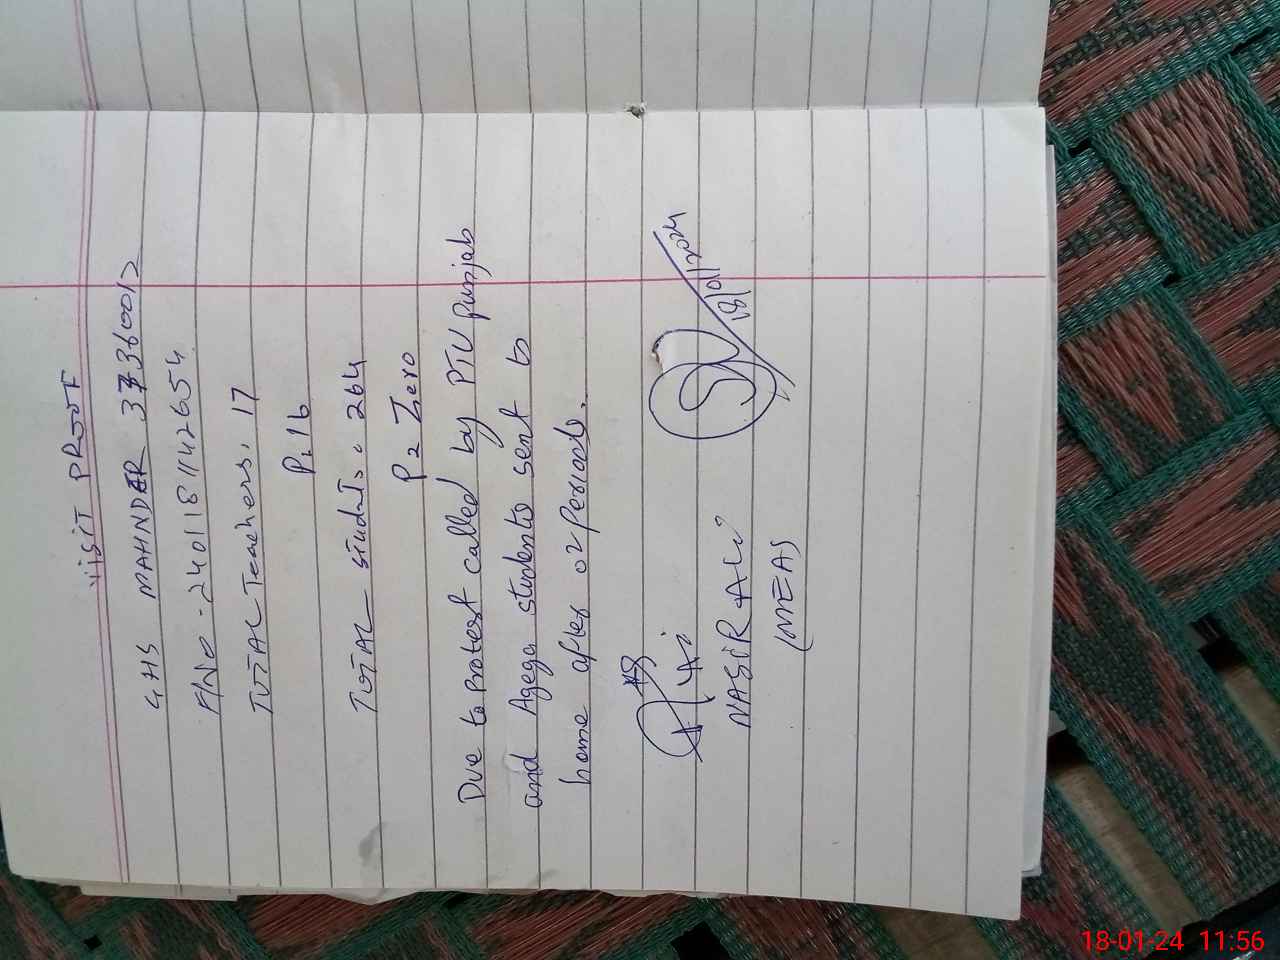 VISIT PROOF
GHS MAHNDER 37360012
F/No - 2401181142654
TOTAL Teachers. 17
P. 16
TOTAL students. 264
P2 Zero
Due to protest called by PTU punjab
and Agega students sent to
home after 02 periods.
18/01/2024
NASIR ALI
(MEAS
18-01-24 11:56